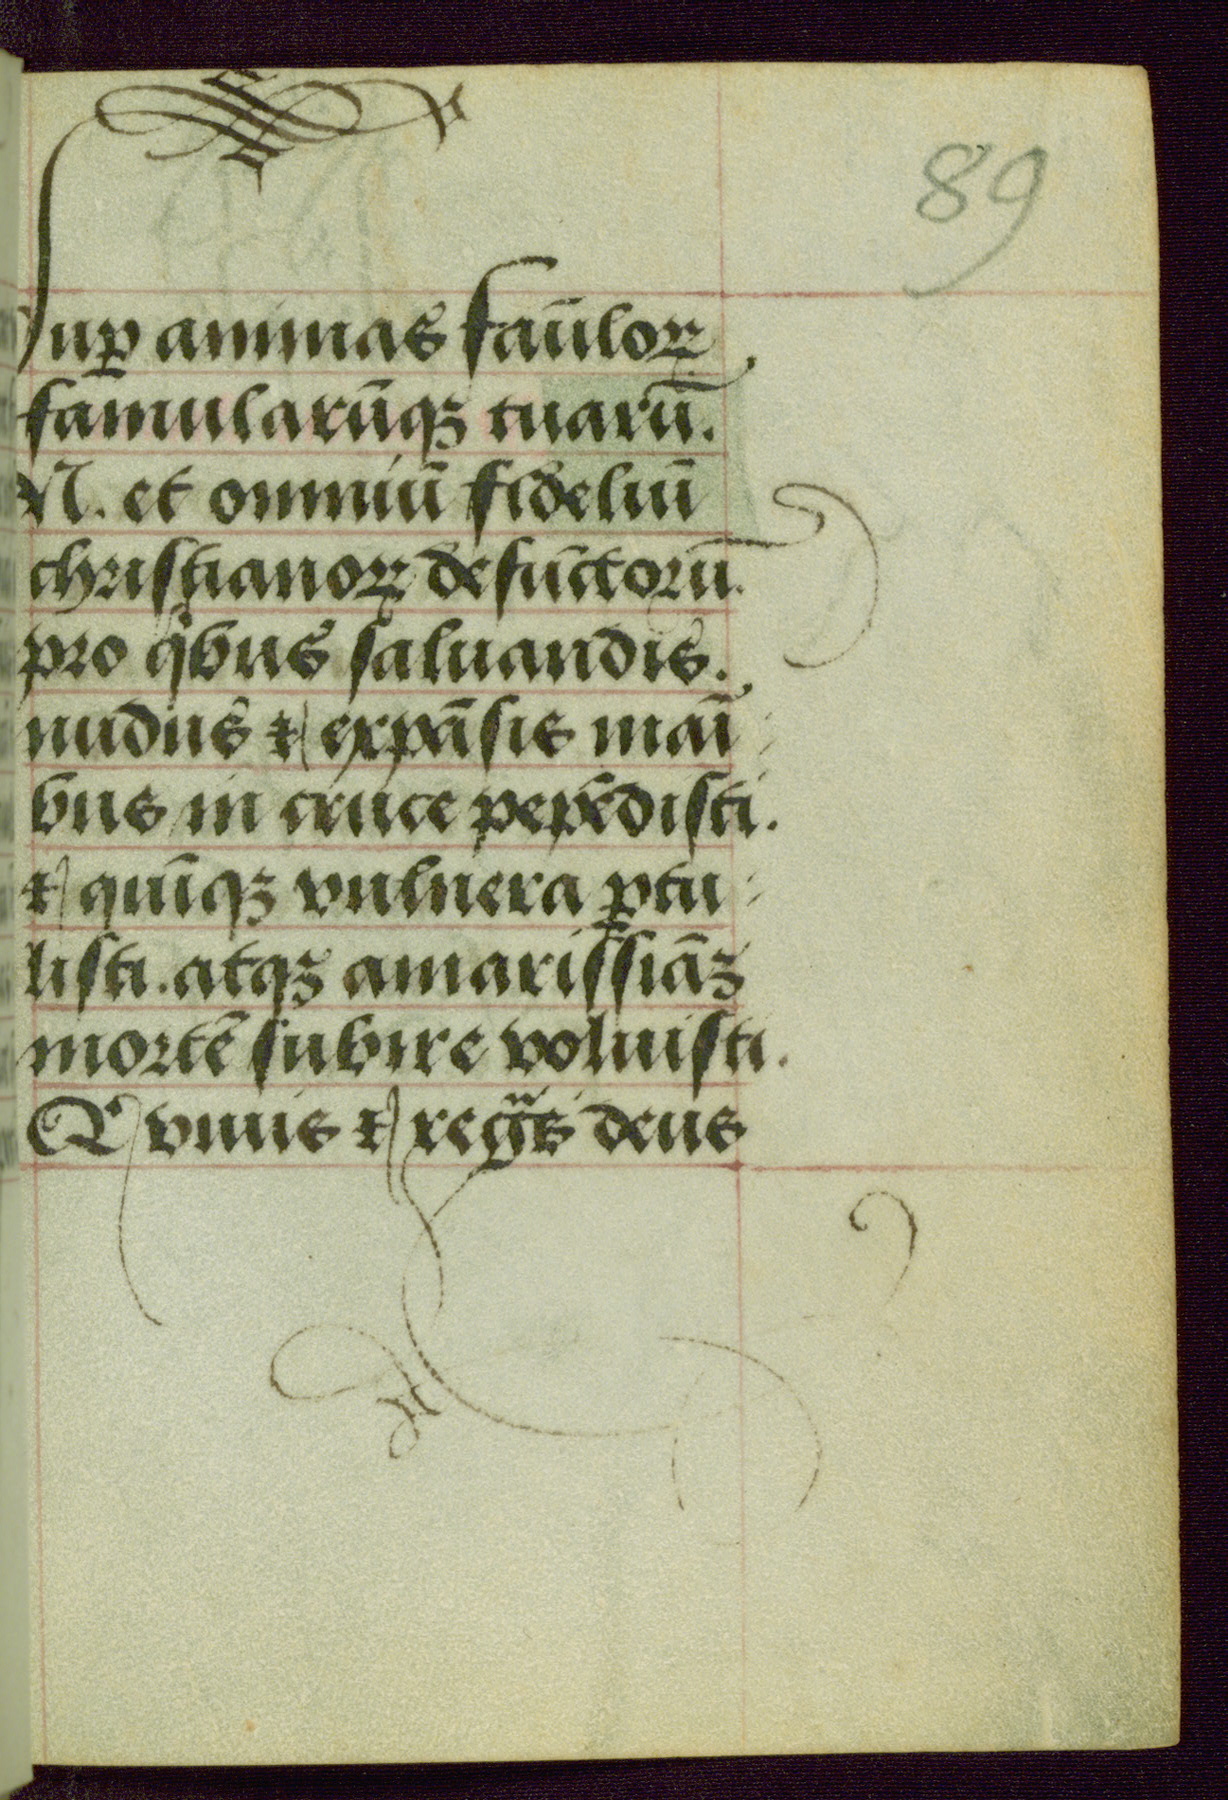 89
sup̱ animas fāulorꝝ
famularūqꝫ tuarū.
N. et omniū fideliū
christianorꝝ defūctorū.
pro qⁱbus saluandis.
nudus ⁊ expāsis mani
bus in cruce pepēdisti.
⁊ quīqꝫ vulnera ꝑtu
listi. atqꝫ amarissiāꝫ
mortē subire voluisti.
Q vuis ⁊ regᵃs deus